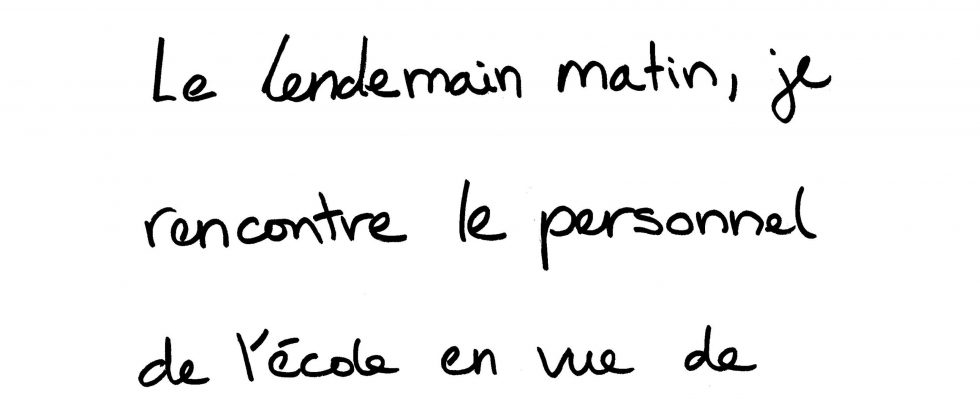 Le lendemain matin, je
rencontre le personnel
de l'école en vue de